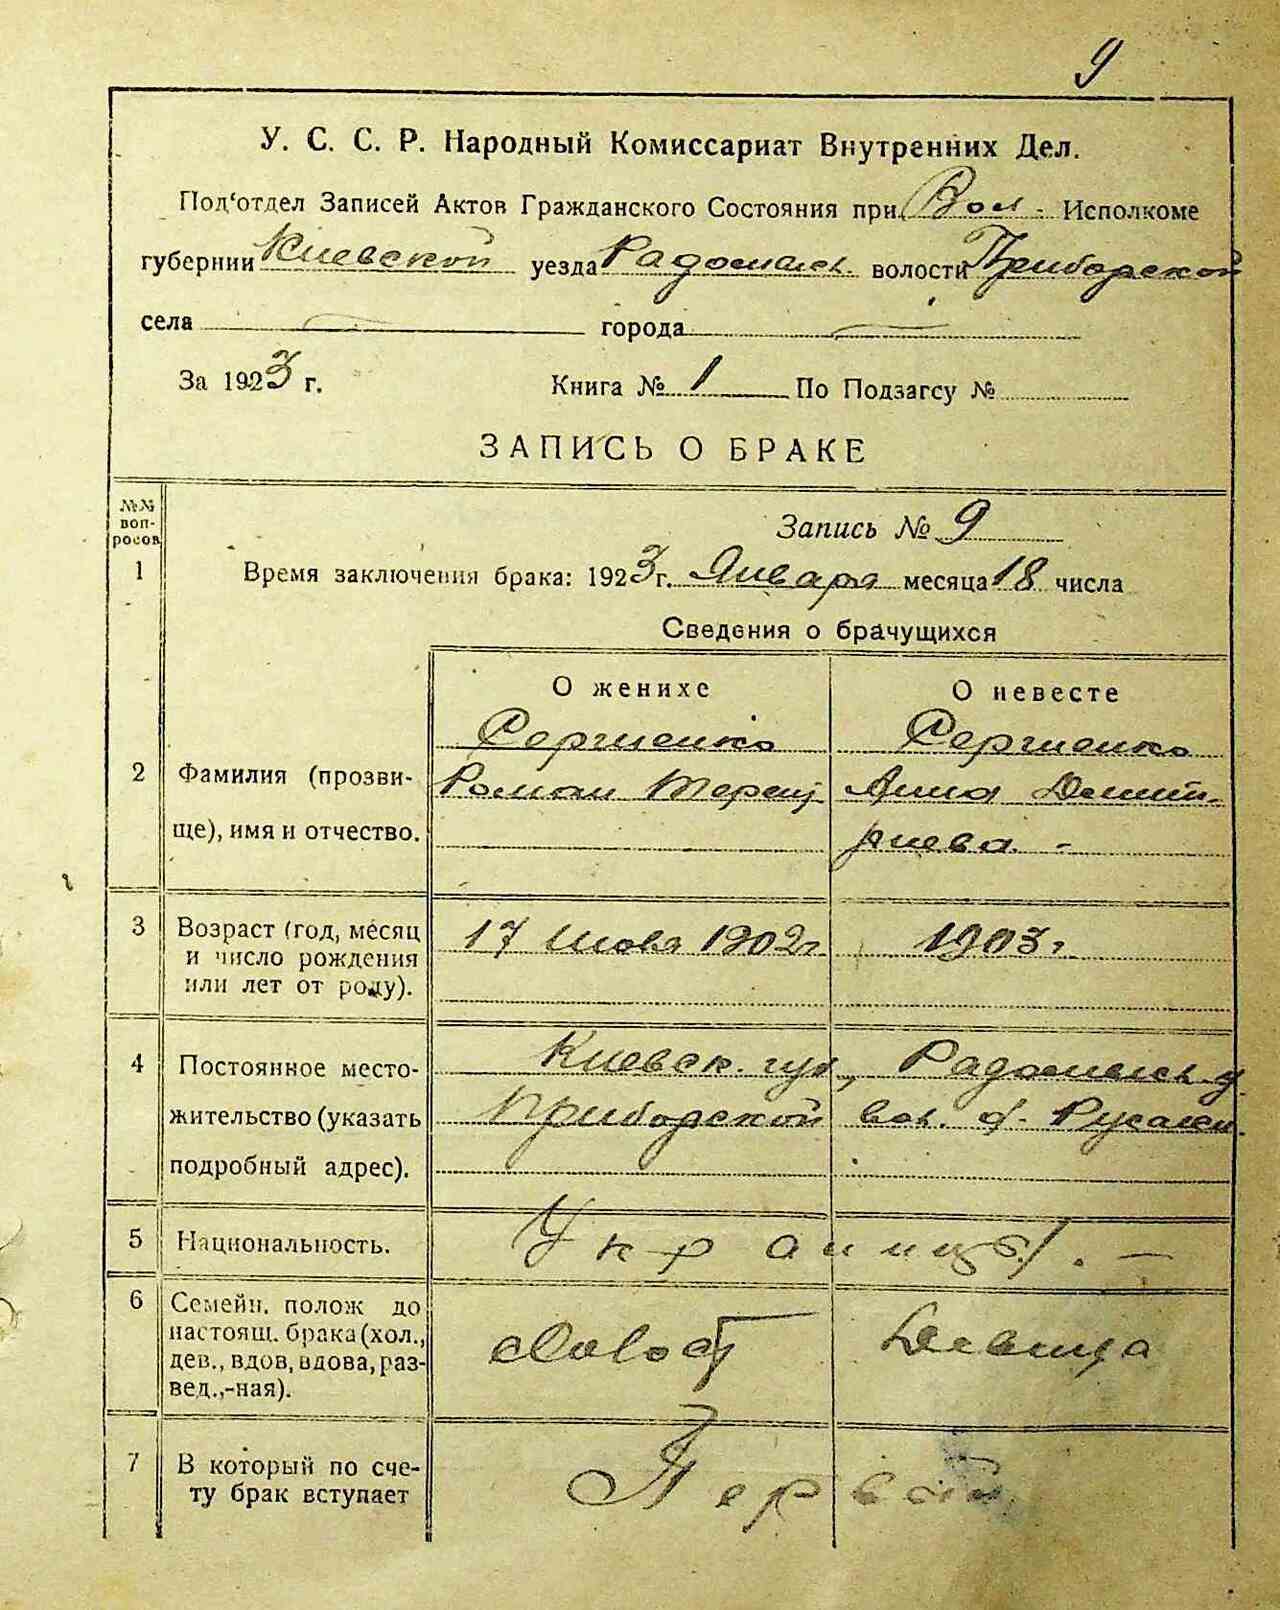 9
У. С. С. Р. Народный Комиссариат Внутренних Дел.
Под'отдел Записей Актов Гражданского Состояния при Вол - Исполкоме
губернии Киевской уезда Радомысл. волости Приборской
села города
За 1923 г. Книга № 1 По Подзагсу №
ЗАПИСЬ О БРАКЕ
№№ воп-росов
Запись № 9
1 Время заключения брака: 1923 г. Января месяца 18 числа
Сведения о брачущихся
О женихе О невесте
Сергиенко Сергиенко
2 Фамилия (прозви- Роман Терен Анна Димит-
ще), имя и отчество. риева -
3 Возраст (год, месяц 17 1902 г 1903 г.
и число рождения
или лет от роду).
4 Постоянное место- Киевск. губ, Радомысл. у.
жительство (указать Приборской вол. с.
подробный адрес).
5 Национальность. Украинцы. —
6 Семейн. полож до
настоящ. брака (хол., Холост Девица
дев., вдов, вдова, раз-
вед.,-ная).
7 В который по сче- Первый
ту брак вступает